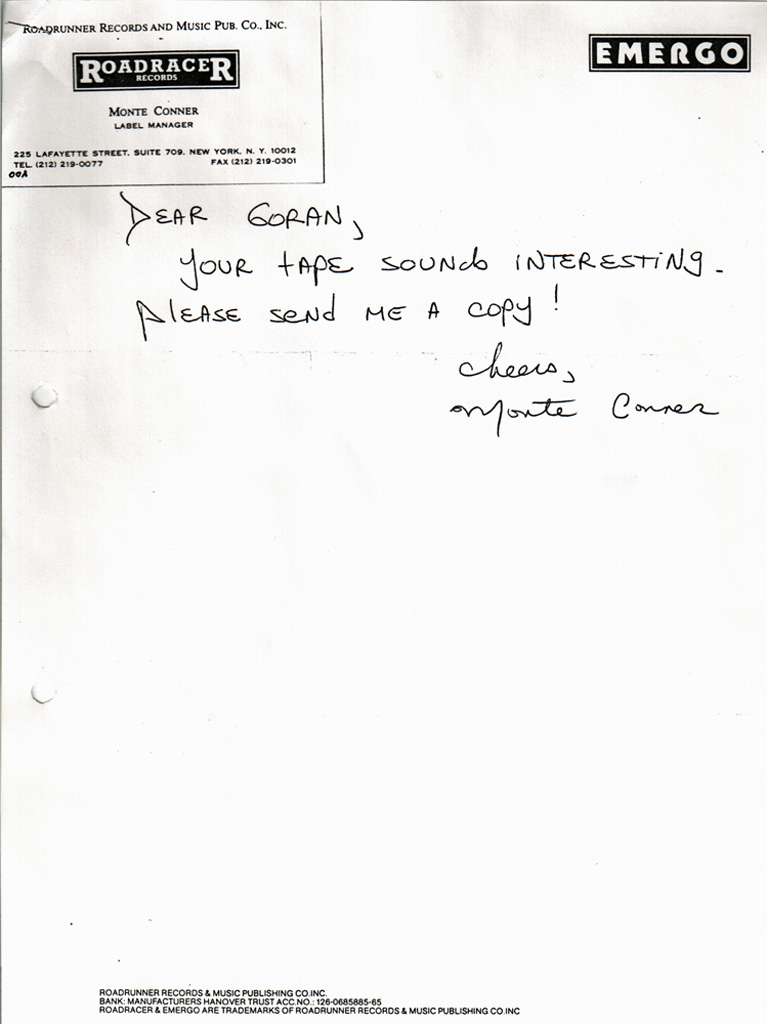 ROADRUNNER RECORDS AND MUSIC PUB. CO., INC.
ROADRACER
RECORDS
MONTE CONNER
LABEL MANAGER
225 LAFAYETTE STREET, SUITE 709, NEW YORK, N. Y. 10012
TEL. (212) 219-0077 FAX (212) 219-0301
EMERGO
DEAR GORAN,
YOUR TAPE SOUNDS INTERESTING.
PLEASE SEND ME A COPY!
Cheers,
Monte Conner
ROADRUNNER RECORDS & MUSIC PUBLISHING CO.INC.
BANK: MANUFACTURERS HANOVER TRUST ACC.NO.: 126-0685885-65
ROADRACER & EMERGO ARE TRADEMARKS OF ROADRUNNER RECORDS & MUSIC PUBLISHING CO.INC